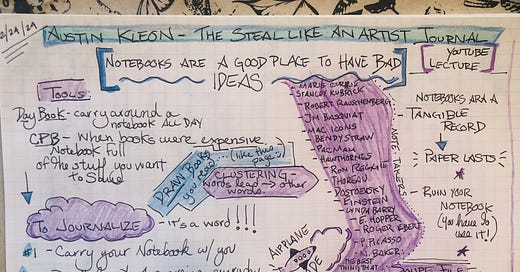 2/29/24
AUSTIN KLEON - THE STEAL LIKE AN ARTIST JOURNAL
NOTEBOOKS ARE A GOOD PLACE TO HAVE BAD
IDEAS
YOUTUBE
LECTURE
Tools:
Day Book - carry around a
notebook ALL DAY
CPB - When books were expensive
Notebook full
of the stuff you want
to save
DRAW Books
you read
(like this
page?)
CLUSTERING -
words lead → other
words.
To JOURNALIZE
it's a word!!!
#1 - Carry your Notebook w/ you
AIRPLANE
MODE
MARIE CURRIE
STANLEY KUBRICK
ROBERT RAUSCHENBERG
JM BASQUIAT
MAC ICONS
BENDY STRAW
PACMAN
HAWTHORNES
RON REGGIE
THOREAU
DOSTOEVSKY
EINSTEIN
LYNDA BARRY
E. HOPPER
ROGER EBERT
P. PICASSO
N. BAKER:
THE BEST
THING THAT
NOTE TAKERS
NOTEBOOKS ARE A
TANGIBLE
RECORD
PAPER LASTS
RUIN YOUR
NOTEBOOK
(You have to
use it!)